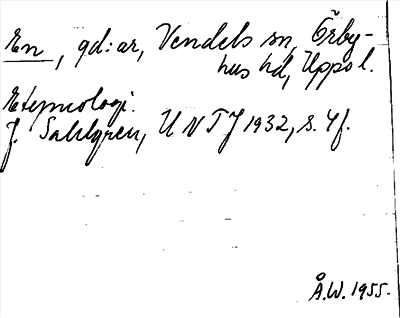 En, gd:ar, Vendels sn, Örby-
hus hd, Uppsl.
Etymologi.
J. Sahlgren, UNTJ 1932, s. 4f.
Å.W. 1955.